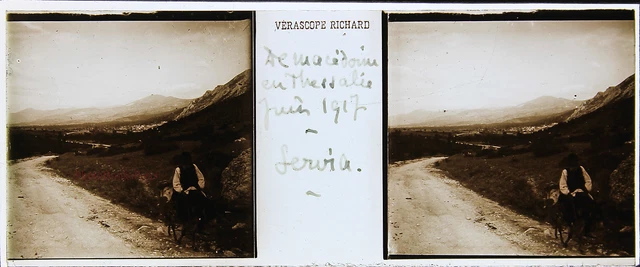 VÉRASCOPE RICHARD
De macédoine
en Thessalie
Juin 1917
-
Servia.
-